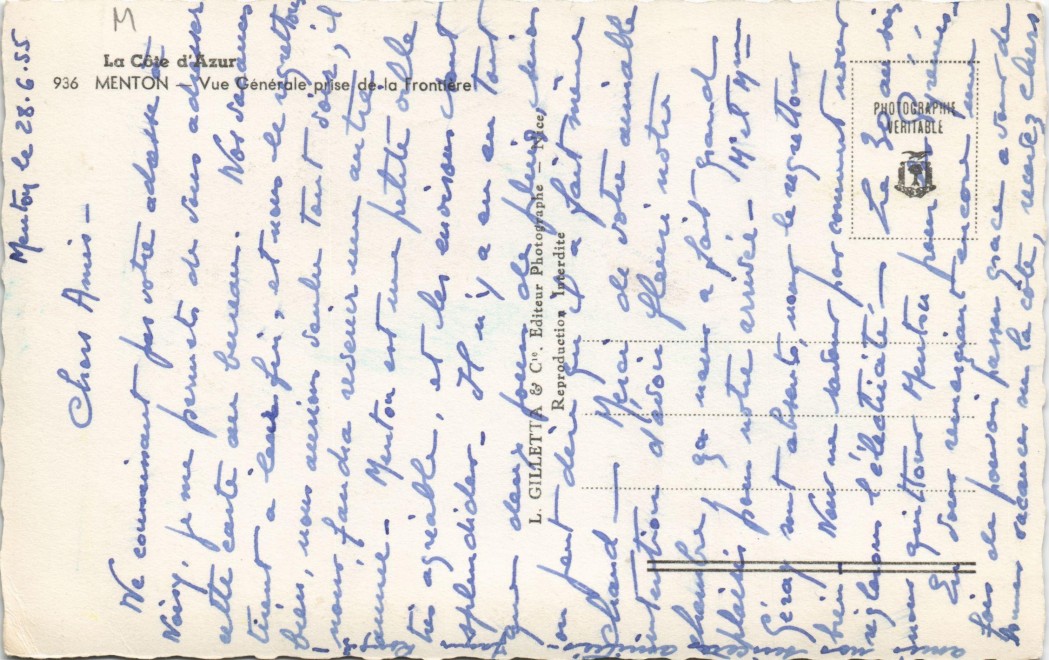 M
La Côte d'Azur
936 MENTON — Vue Générale prise de la Frontière
L. GILLETTA & Cie. Editeur Photographe — Nice
Reproduction Interdite
PHOTOGRAPHIE
VÉRITABLE
Menton le 28.6.55
Chers Amis —
Ne connaissant pas votre adresse à
Noisy, je me permets de vous adresser
cette carte au bureau. Nos vacances
tirent à leur fin, et nous le regrettons
bien, nous aurions voulu tant soit, il
nous faudra revenir une autre
année — Menton est une petite ville
très agréable, et les environs sont
splendides — Il n'y a en tout
que deux jours de pluie, donc
on peut dire qu'il a fait même
chaud — Merci de votre aimable
intention d'avoir fleuri notre
chambre ça nous a fait grand
plaisir pour notre arrivée — Mr et Mme
Géray sont absents, nous le regrettons
bien. Nous ne savons pas comment nous
réglerons l'électricité — Le 30 au soir
nous quittons Menton
En vous remerciant encore une
fois de pouvoir passer grâce à vous de
bonnes vacances sur la côte, recevez chers
amis nos sincères amitiés —